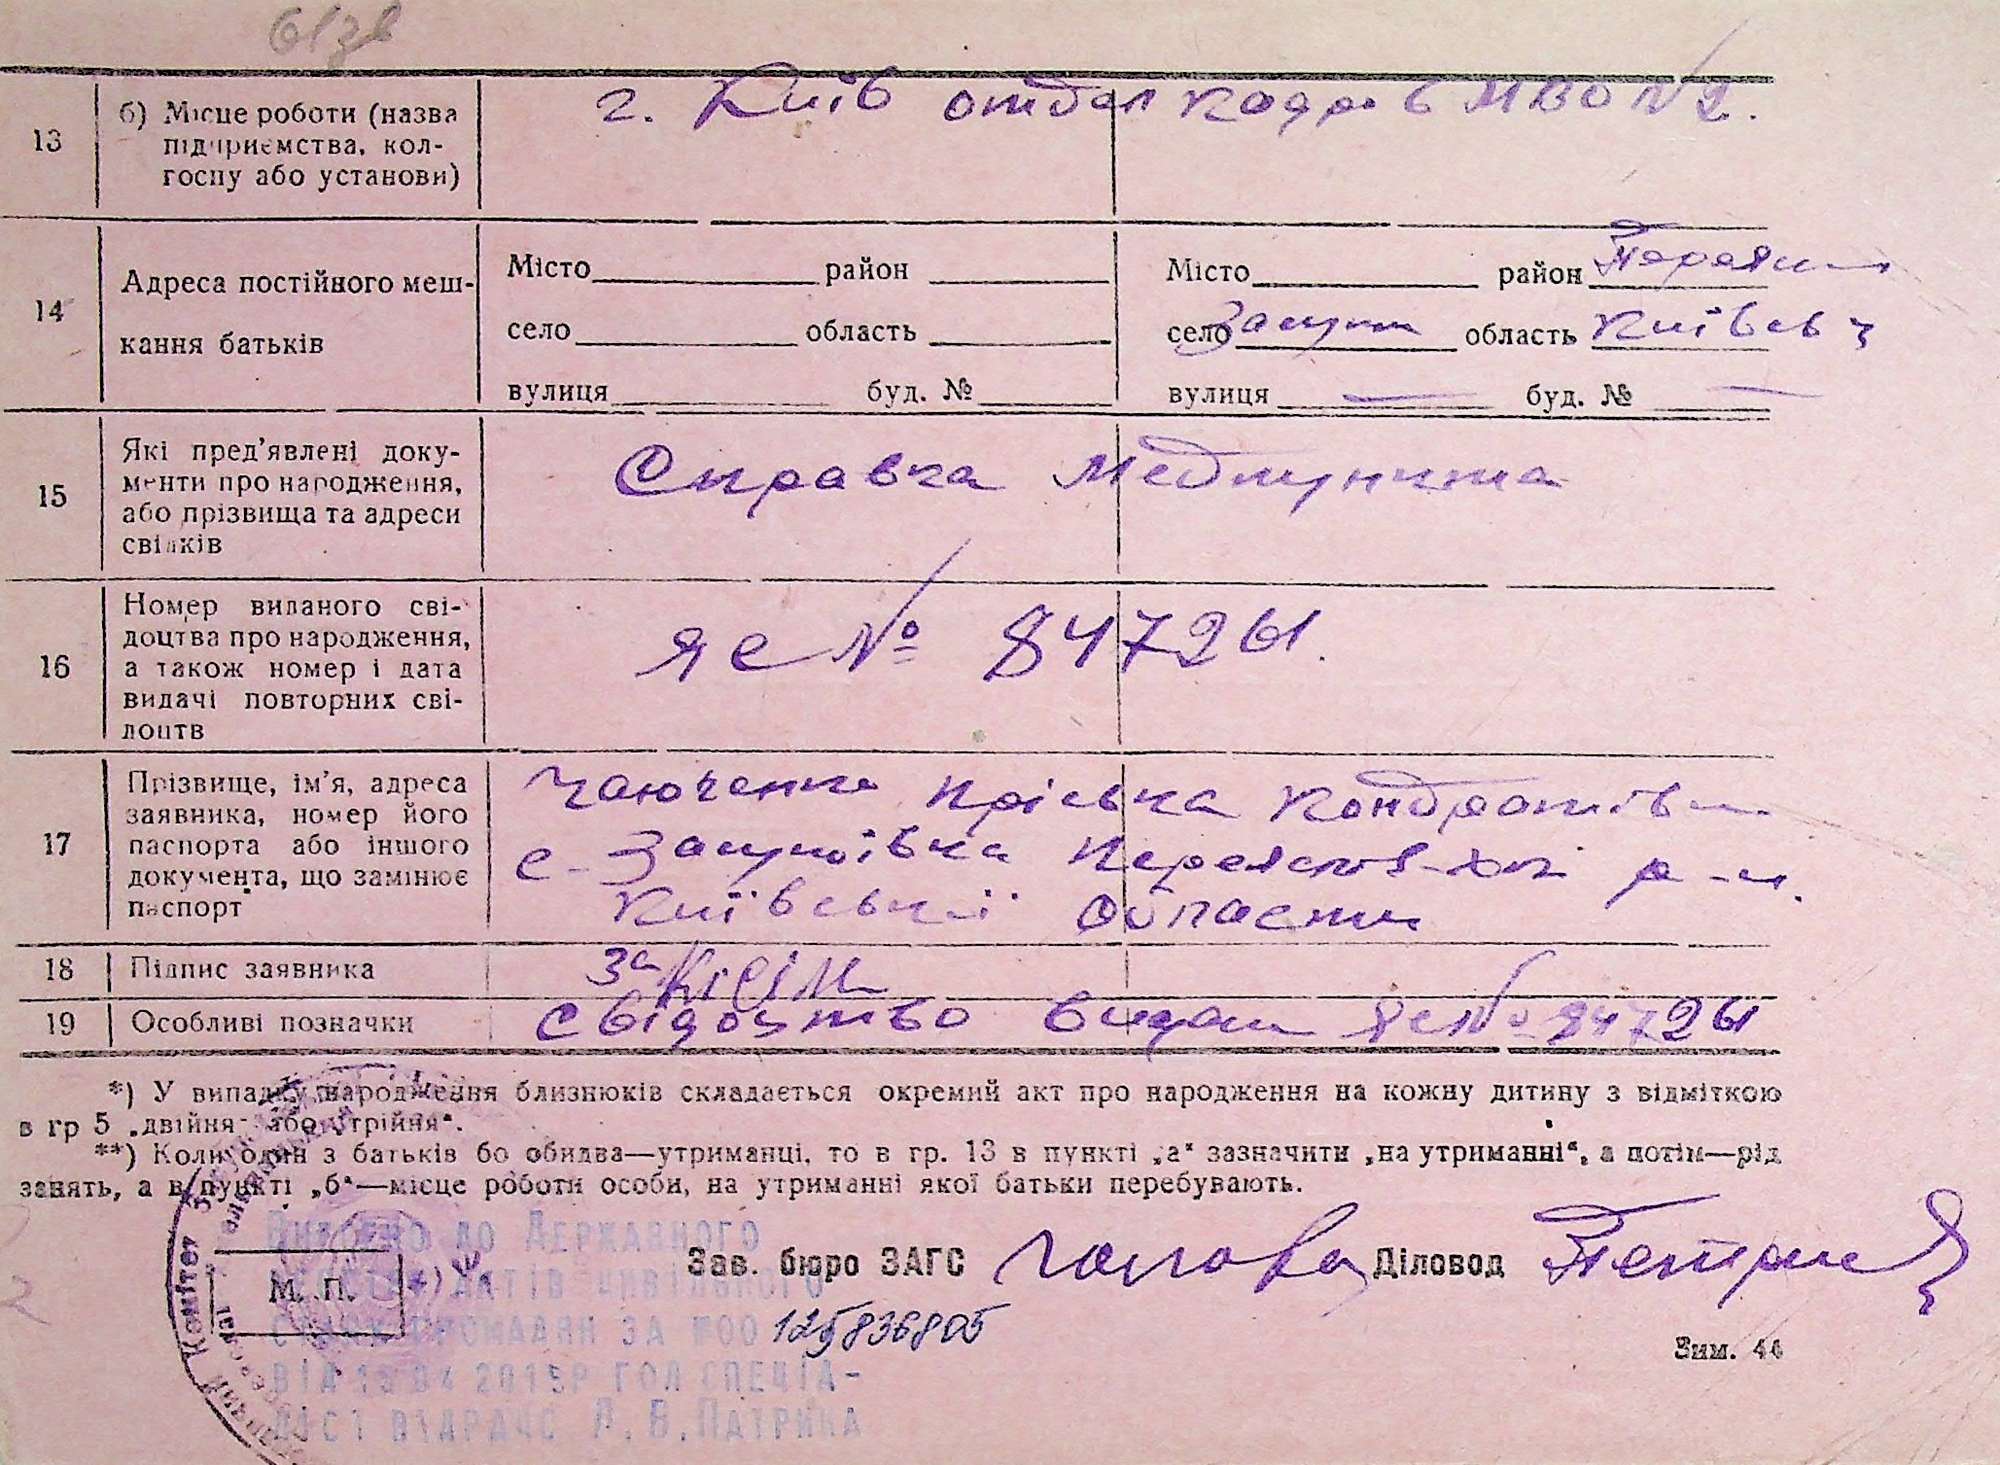 13
б) Місце роботи (назва
підприємства, кол-
госпу або установи)
г. Київ отдел кадров МВО №2.
14
Адреса постійного меш-
кання батьків
Місто район
село область
вулиця буд. №
Місто район
село область
вулиця буд. №
15
Які пред'явлені доку-
менти про народження,
або прізвища та адреси
свідків
Справка Медпункта
16
Номер виданого сві-
доцтва про народження,
а також номер і дата
видачі повторних сві-
доцтв
ЯС № 847261.
17
Прізвище, ім'я, адреса
заявника, номер його
паспорта або іншого
документа, що замінює
паспорт
Пріська
с.
Київської области
18 Підпис заявника
19 Особливі позначки
свідоцтво видан ЯС № 847261
*) У випадку народження близнюків складається окремий акт про народження на кожну дитину з відміткою
в гр 5 „двійня" або „трійня".
**) Коли один з батьків бо обидва—утриманці, то в гр. 13 в пункті „а" зазначити „на утриманні", а потім—рід
занять, а в пункті „б"—місце роботи особи, на утриманні якої батьки перебувають.
М. П.
Зав. бюро ЗАГС Діловод
до Державного
актів цивільного
громадян за №00 125836805
від 13 04 2015р гол спеціа-
ліст відрацс Л. В. Патрина
Зим. 44